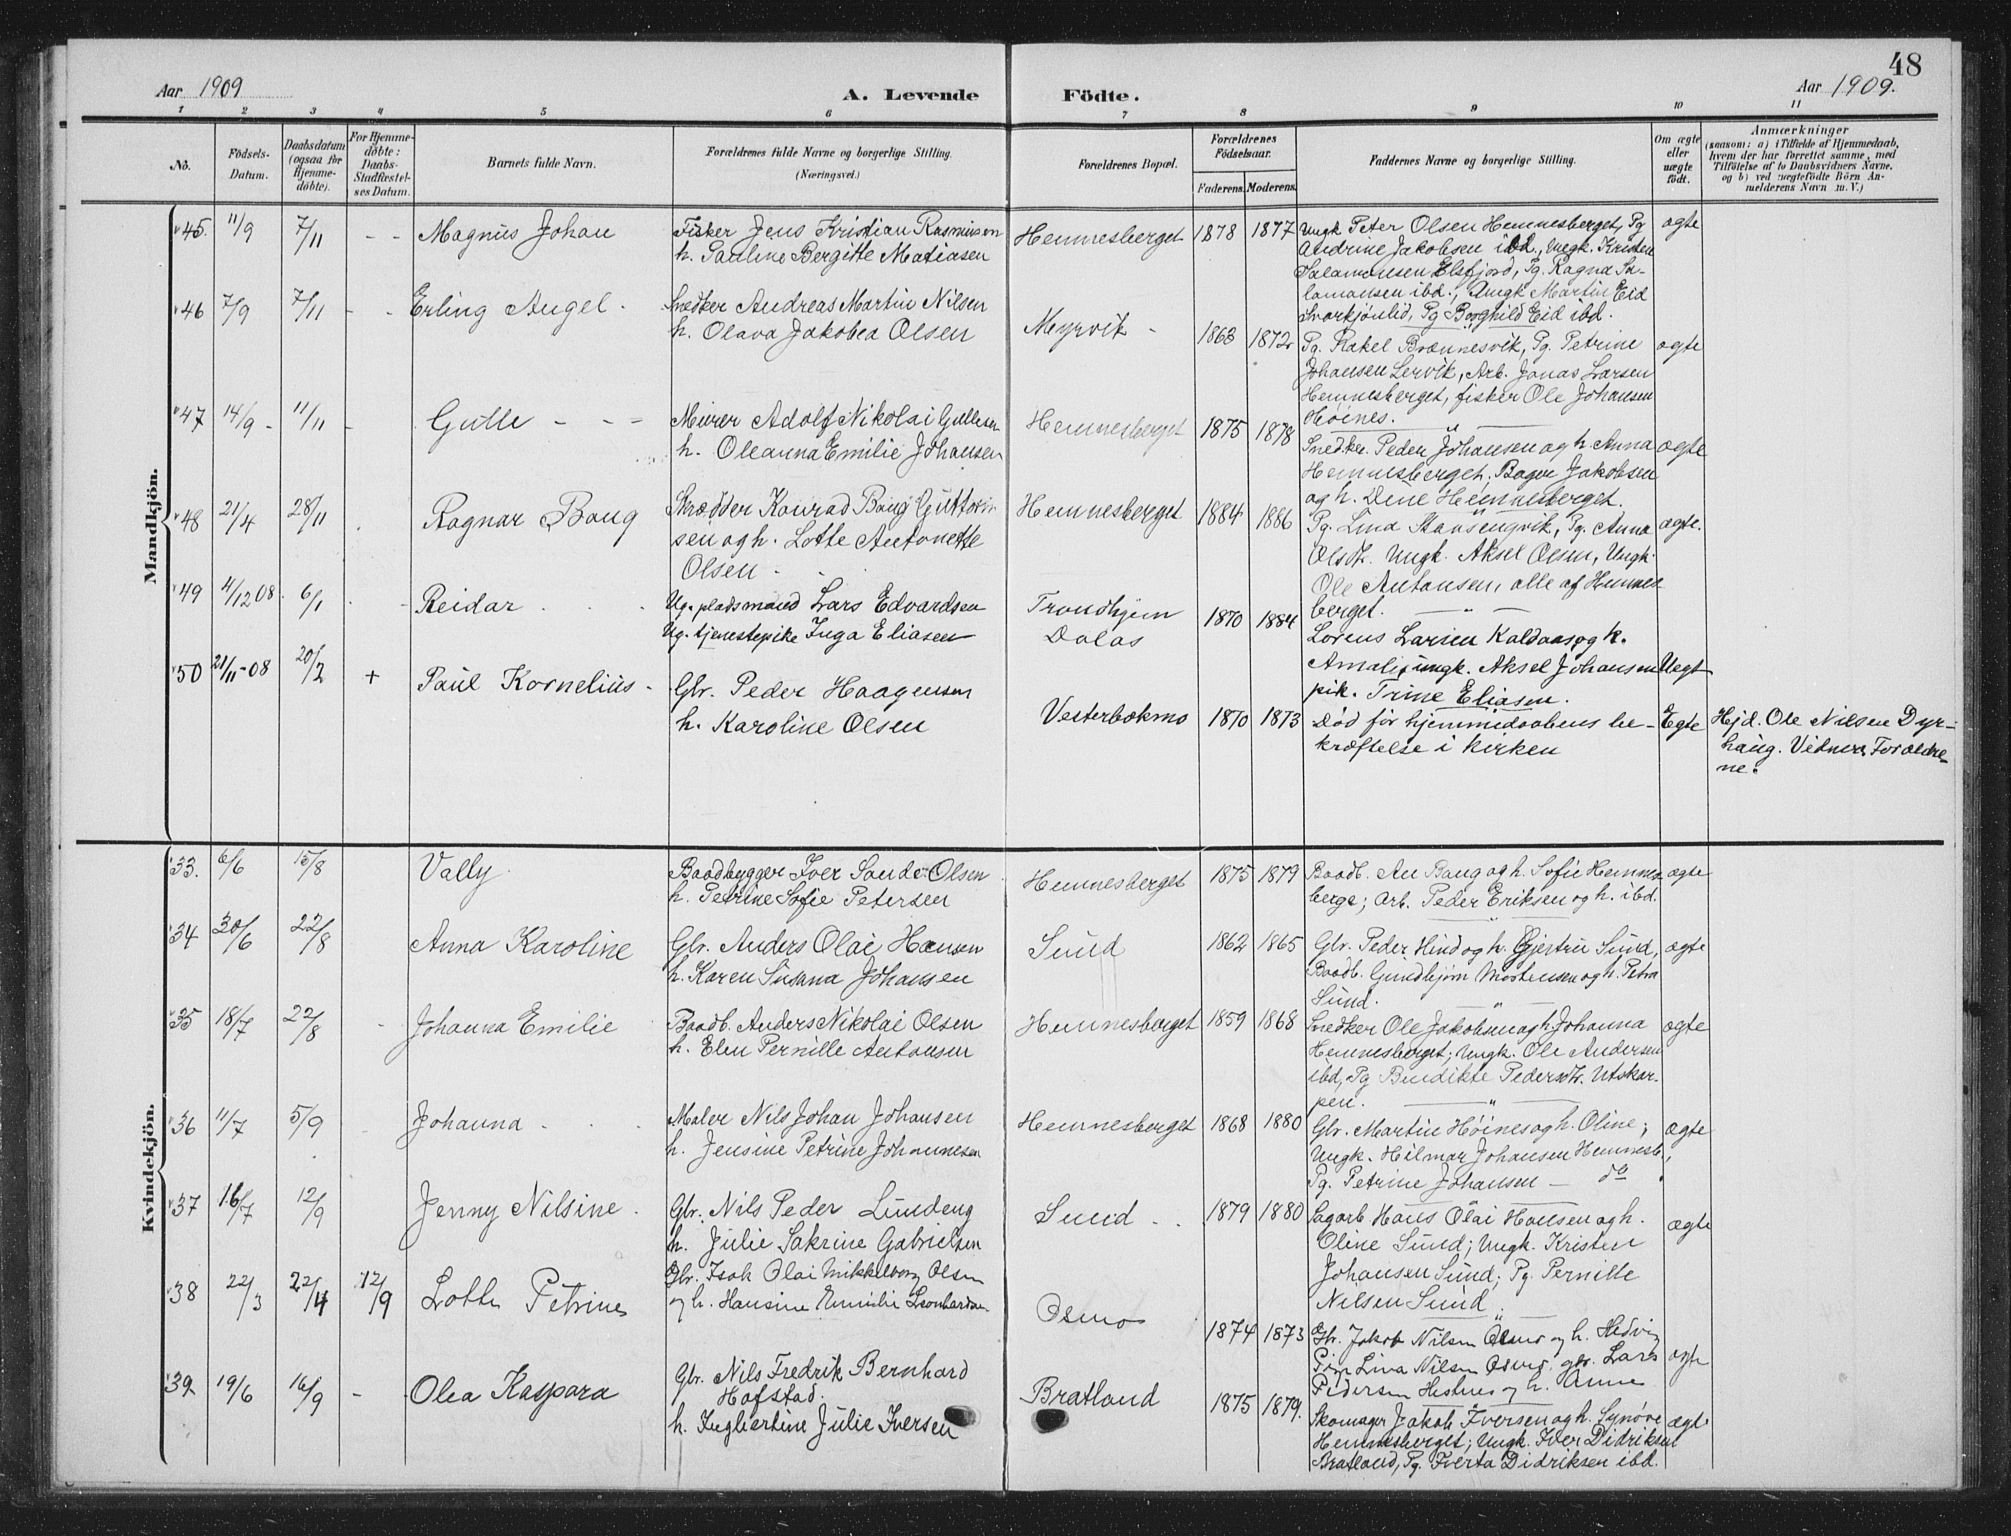 48
Aar 1909
A. Levende Födte.
Aar 1909.
1 2 3 4 5 6 7 8 9 10 11
No.
Födsels-Datum.
Daabsdatum (ogsaa for Hjemme-döbte).
For Hjemme-döbte: Daabs-Stadfæstel-ses Datum.
Barnets fulde Navn.
Forældrenes fulde Navne og borgerlige Stilling.
(Næringsvei.)
Forældrenes Bopæl.
Forældrenes Födselsaar.
Faderens. Moderens.
Faddernes Navne og borgerlige Stilling.
Om ægte eller uægte födt.
Anmærkninger
(saasom: a) i Tilfælde af Hjemmedaab, hvem der har forrettet samme, med Tilföielse af to Daabsvidners Navne, og b) ved uægtefödte Börn An-melderens Navn m. V.)
Mandkjön.
45. 11/9 7/11 - - Magnus Johan
Fisker Jens Kristian Rasmussen
h. Pauline Bergitte Matiasen
Hemnesberget 1878 1877
Ungk Peter Olsen Hemnesberget, Pg
Andrine Jakobsen ibd., Ungk. Kristen
Salamonsen Elsfjord, Pg. Ragna Sa-
lamonsen ibd., Ungk Martin Eid
Pg Borghild Eid ibd.
ægte
46 7/9 7/11 - - Erling Angel -
Snedker Andreas Martin Nilsen
h. Olava Jakobea Olsen
Myrvik - 1863 1872
Pg. Rakel Brænnesvik, Pg. Petrine
Johansen Lervik, Arb. Jonas Larsen
Hemnesberget, fisker Ole Johansen
Høines.
ægte
47 14/9 - 11/11 - Gulle - - =
Murer Adolf Nikolai Gullesen
h. Oleanna Emilie Johansen
Hemnesberget 1875 1878
Snedker Peder Johansen og h. Anna
Hemnesberget, Bager Jakobsen
og h. Dene Hemnesberget.
ægte
48 21/4 28/11 Ragnar Baug
Skrædder Konrad Baug Guttorm
sen og h. Lotte Antonette
Olsen
Hemnesberget 1884 1886
Pg. Lina Pg. Anna
Olsdt. Ungk. Aksel Olsen, Ungk.
Ole Antonsen, alle af Hemnes-
berget.
ægte.
49 4/12 08 6/1 - Reidar
Ug. pladsmand Lars Edvardsen
Ug. tjenestepike Inga Eliasen
Trondhjem
Dalos
1870 1884
Lorens Larsen Kaldaas og h.
Amalie, ungk. Aksel Johansen
pik. Trine Eliasen.
Uegt
50 21/11-08 20/2 + Paul Kornelius -
Gbr. Peder Haagensen
h. Karoline Olsen
Vesterbækmo 1870 1873
Død før hjemmedaabens be-
kræftelse i kirken
Egte
Hjd. Ole Nilsen Dyr-
haug. Vidner Forældre-
ne.
Kvindekjön.
33. 6/6 15/8 Vally
Baadbygger Iver Sande Olsen
h. Petrine Sofie Petersen
Hemnesberget 1875 1879
Baadb. An Baug og h. Sofie Hemnes-
berge; arb. Peder Eriksen og h. ibd.
ægte
34 20/6 22/8 Anna Karoline
Gbr. Anders Olai Hansen
h. Karen Susanna Johansen
Sund 1862 1865
Gbr. Peder Hind og h. Gjertru Sund,
Baadb. Gundbjørn Mortensen og h. Petra
Sund.
ægte
35 18/7 22/8 - Johanna Emilie
Baadb. Anders Nikolai Olsen
h. Elen Pernille Antonsen
Hemnesberget 1859 1868
Snedker Ole Jakobsen og h Johanna
Hemnesberget; Ungk. Ole Andersen
ibd, Pg Bendikte Pedersdt. Utskar-
pen.
ægte
36 11/7 5/9 Johanna
Maler Nils Johan Johansen
h. Jensine Petrine Johannesen
Hemnesberget 1868 1880
Gbr. Martin Høines og h. Oline;
Ungk. Hilmar Johansen Hemnesb.,
Pg. Petrine Johansen - do
ægte
37 16/7 12/9 Jenny Nilsine
Gbr. Nils Peder Lundeng
h. Julie Sakrine Gabrielsen
Sund - 1879 1880
Sagarb Hans Olai Hansen og h.
Oline Sund; Ungk. Kristen
Johansen Sund; Pg. Pernille
Nilsen Sund.
ægte
38 22/3 22/4 12/9 Lotte Petrine
Gbr. Isak Olai Mikkelborg Olsen
og h. Hansine Emilie Leonhardsen
Osmo 1874 1873
Gbr. Jakob Nilsen Osmo og h. Hedvig
Pige Lina Nilsen gbr. Lars
Pedersen Hestnes og h. Anne
ægte
39. 19/6 16/9 - Olea Kaspara
Gbr. Nils Fredrik Bernhard
Hofstad.
h. Ingbertine Julie Iversen
Bratland 1875 1879.
Skomager Jakob Iversen og h. Synøve
Hemnesberget; Ungk. Iver Didriksen
Bratland, Pg. Iverta Didriksen ibd.
ægte